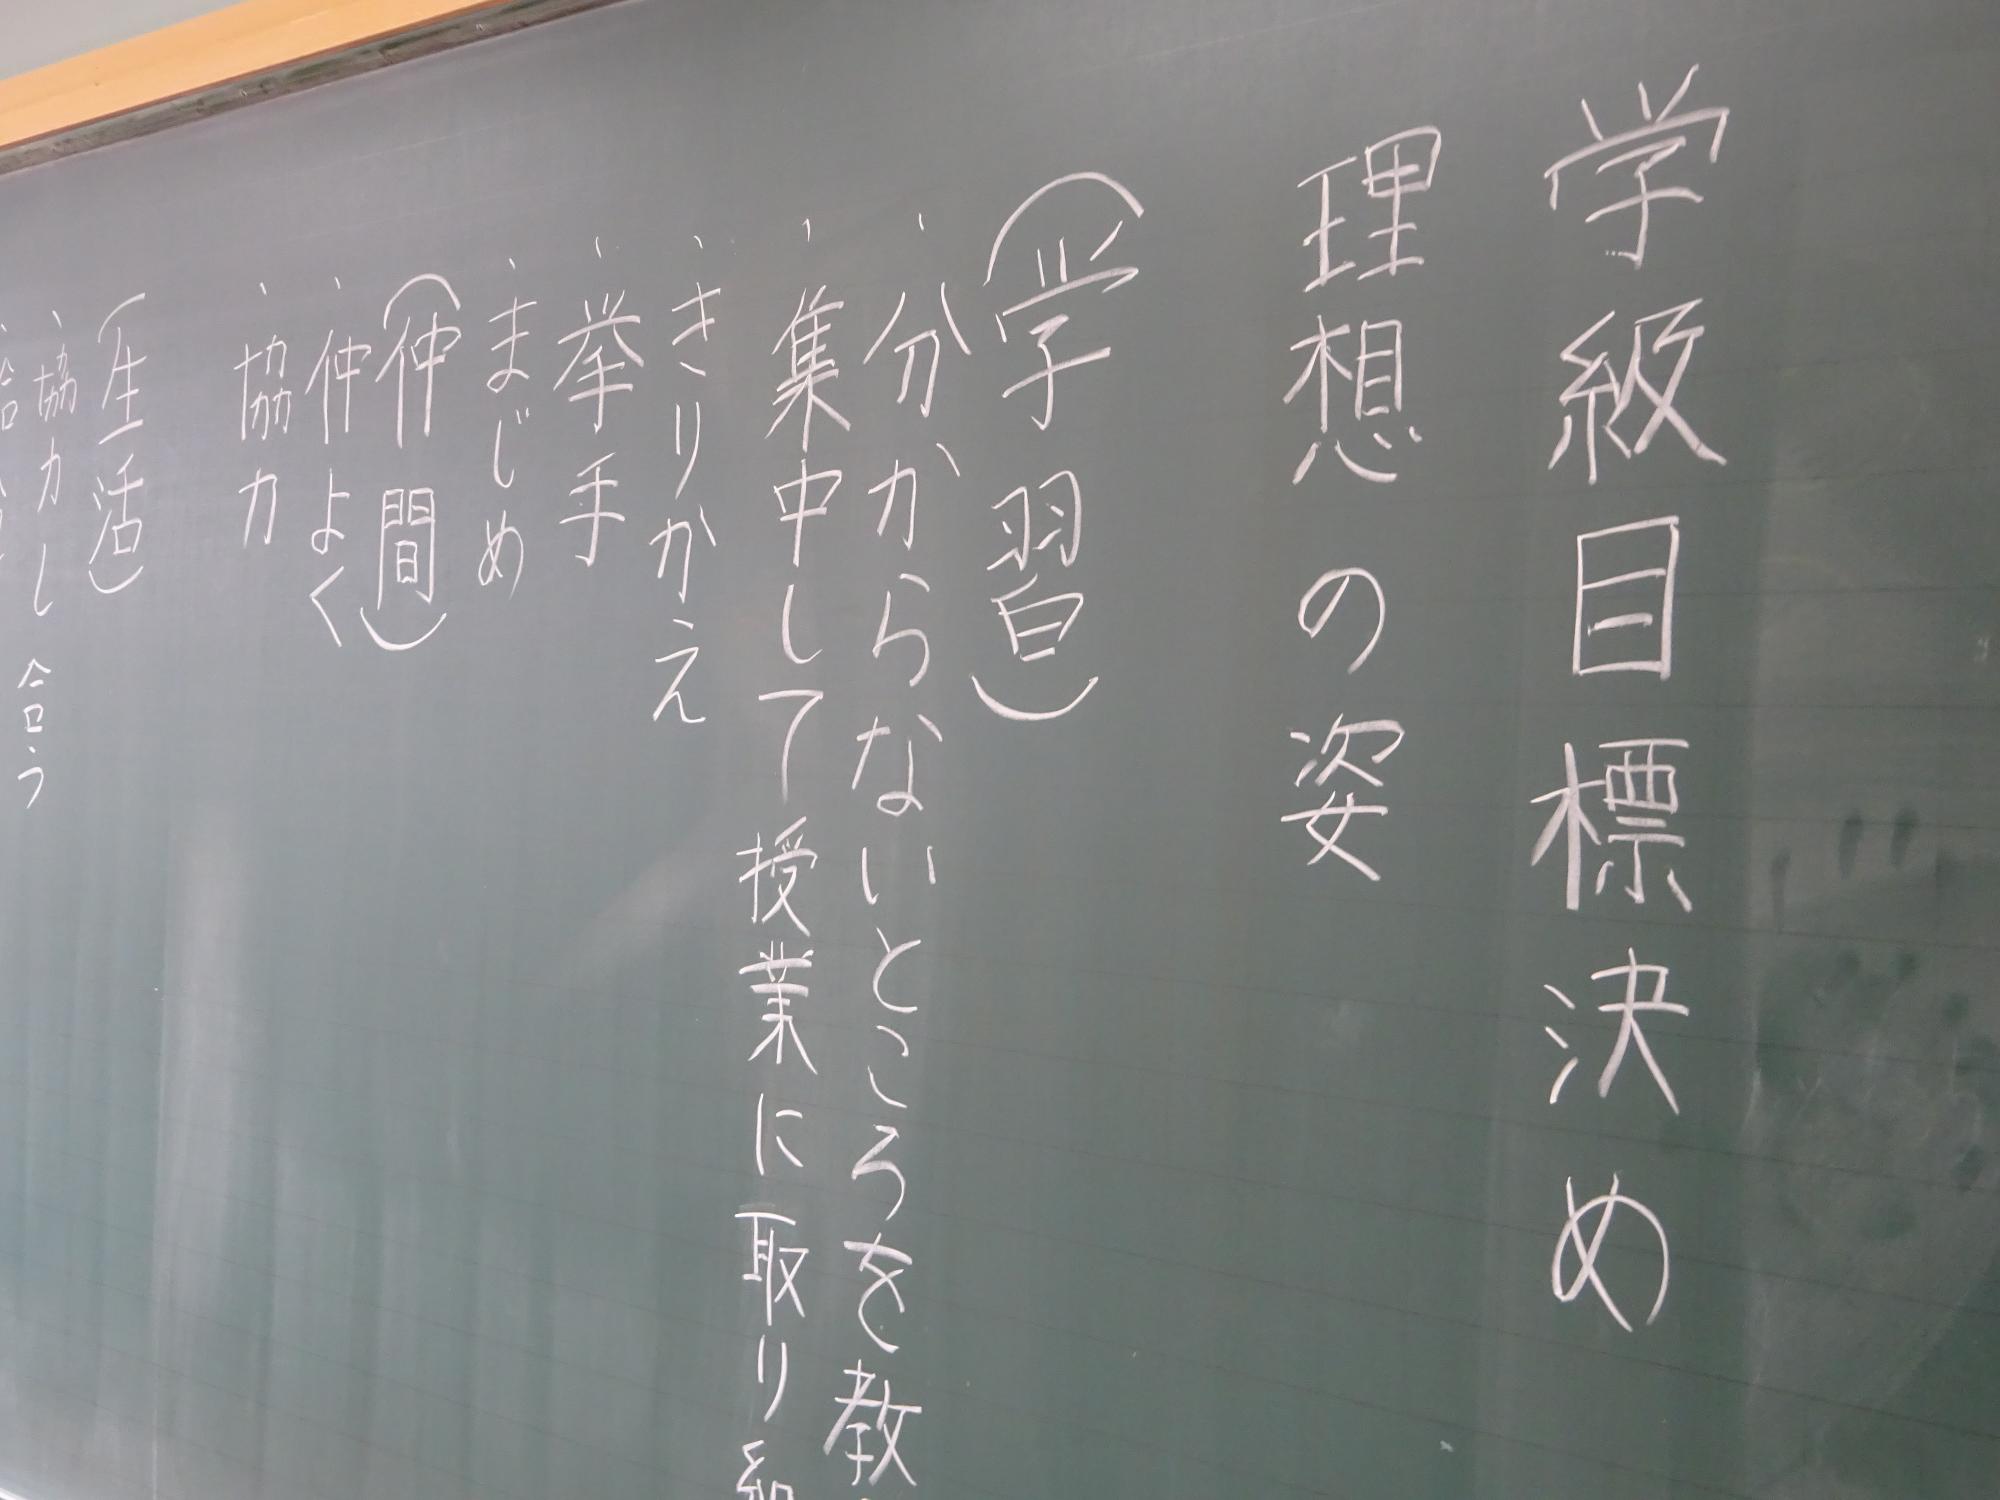 学級目標決め
理想の姿
(学習)
・分からないところを教
・集中して授業に取り組
・きりかえ
・挙手
・まじめ
(仲間)
・仲よく
・協力
(生活)
・協力し合う